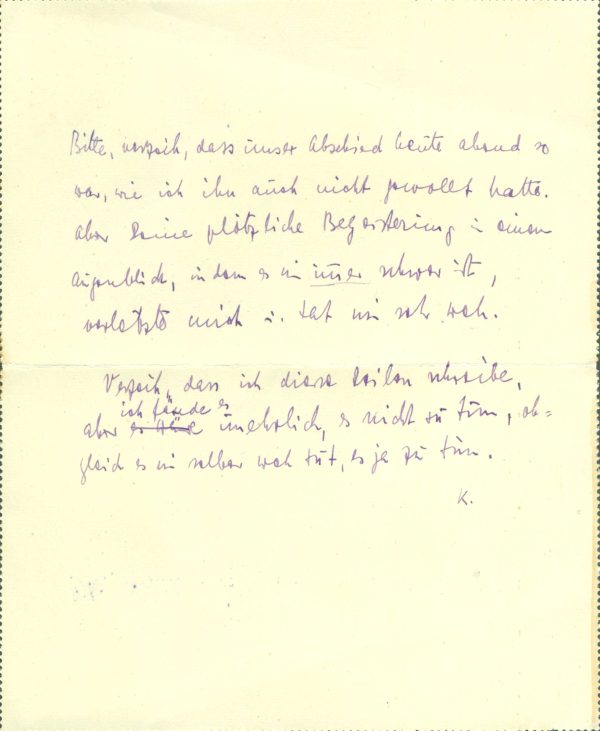 Bitte, verzeih, dass unser Abschied heute abend so
war, wie ich ihn auch nicht gewollt hatte.
Aber Deine plötzliche Begeisterung in einem
Augenblick, in dem es mir immer schwer ist,
verletzte mich u. tat mir sehr weh.
Verzeih, dass ich diese Zeilen schreibe,
ich fände es
aber es wäre unehrlich, es nicht zu tun, ob=
gleich es mir selber weh tut, es je zu tun.
K.